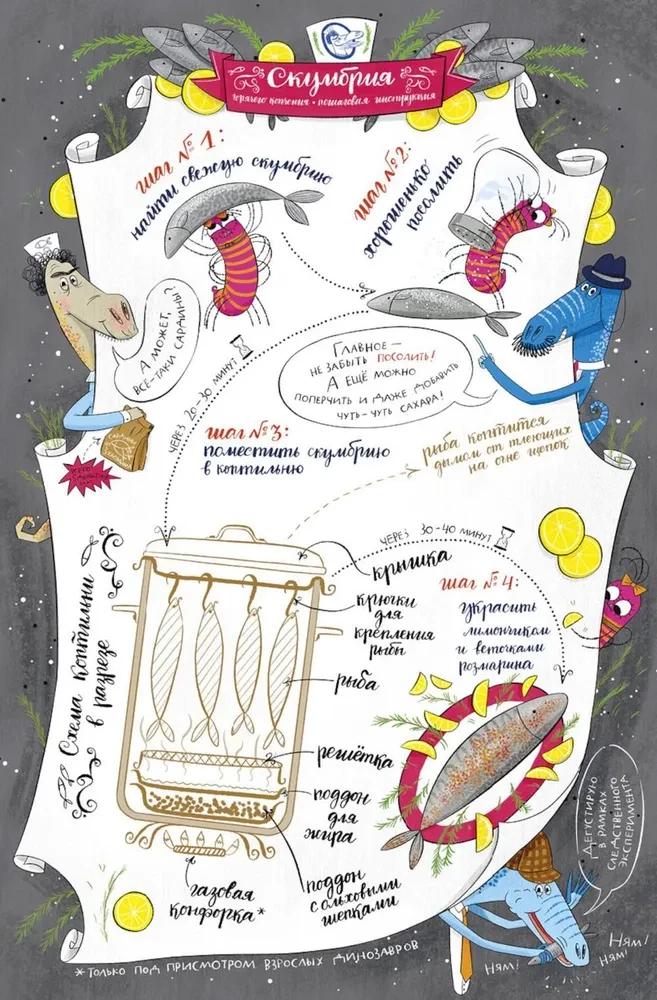 Скумбрия
горячего копчения • пошаговая инструкция
шаг № 1:
найти свежую скумбрию
шаг № 2:
хорошенько
посолить
А может,
всё-таки сардины?
Главное –
не забыть посолить!
А ещё можно
поперчить и даже добавить
чуть-чуть сахара!
через 20-30 минут
шаг № 3:
поместить скумбрию
в коптильню
рыба коптится
дымом от тлеющих
на огне щепок
Схема коптильни
в разрезе
через 30-40 минут
крышка
крючки
для
крепления
рыбы
рыба
решётка
поддон
для
жира
поддон
с ольховыми
щепками
газовая
конфорка*
шаг № 4:
украсить
лимончиком
и веточками
розмарина
Дегустирую
в рамках
следственного
эксперимента
Ням!
Ням!
Ням!
*Только под присмотром взрослых динозавров